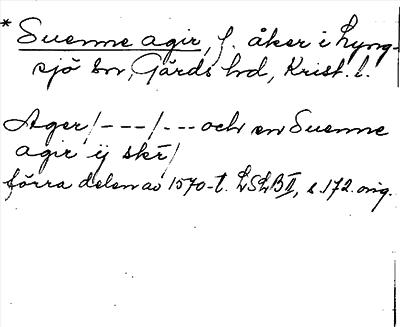 * Suenne agir, f. åker i Lyng-
sjö sn, Gärds hd, Krist. l.
Ager/---/--- och en Suenne
agir ij skr̄/
förra delen av 1570-t. LSLB II, s. 172. orig.